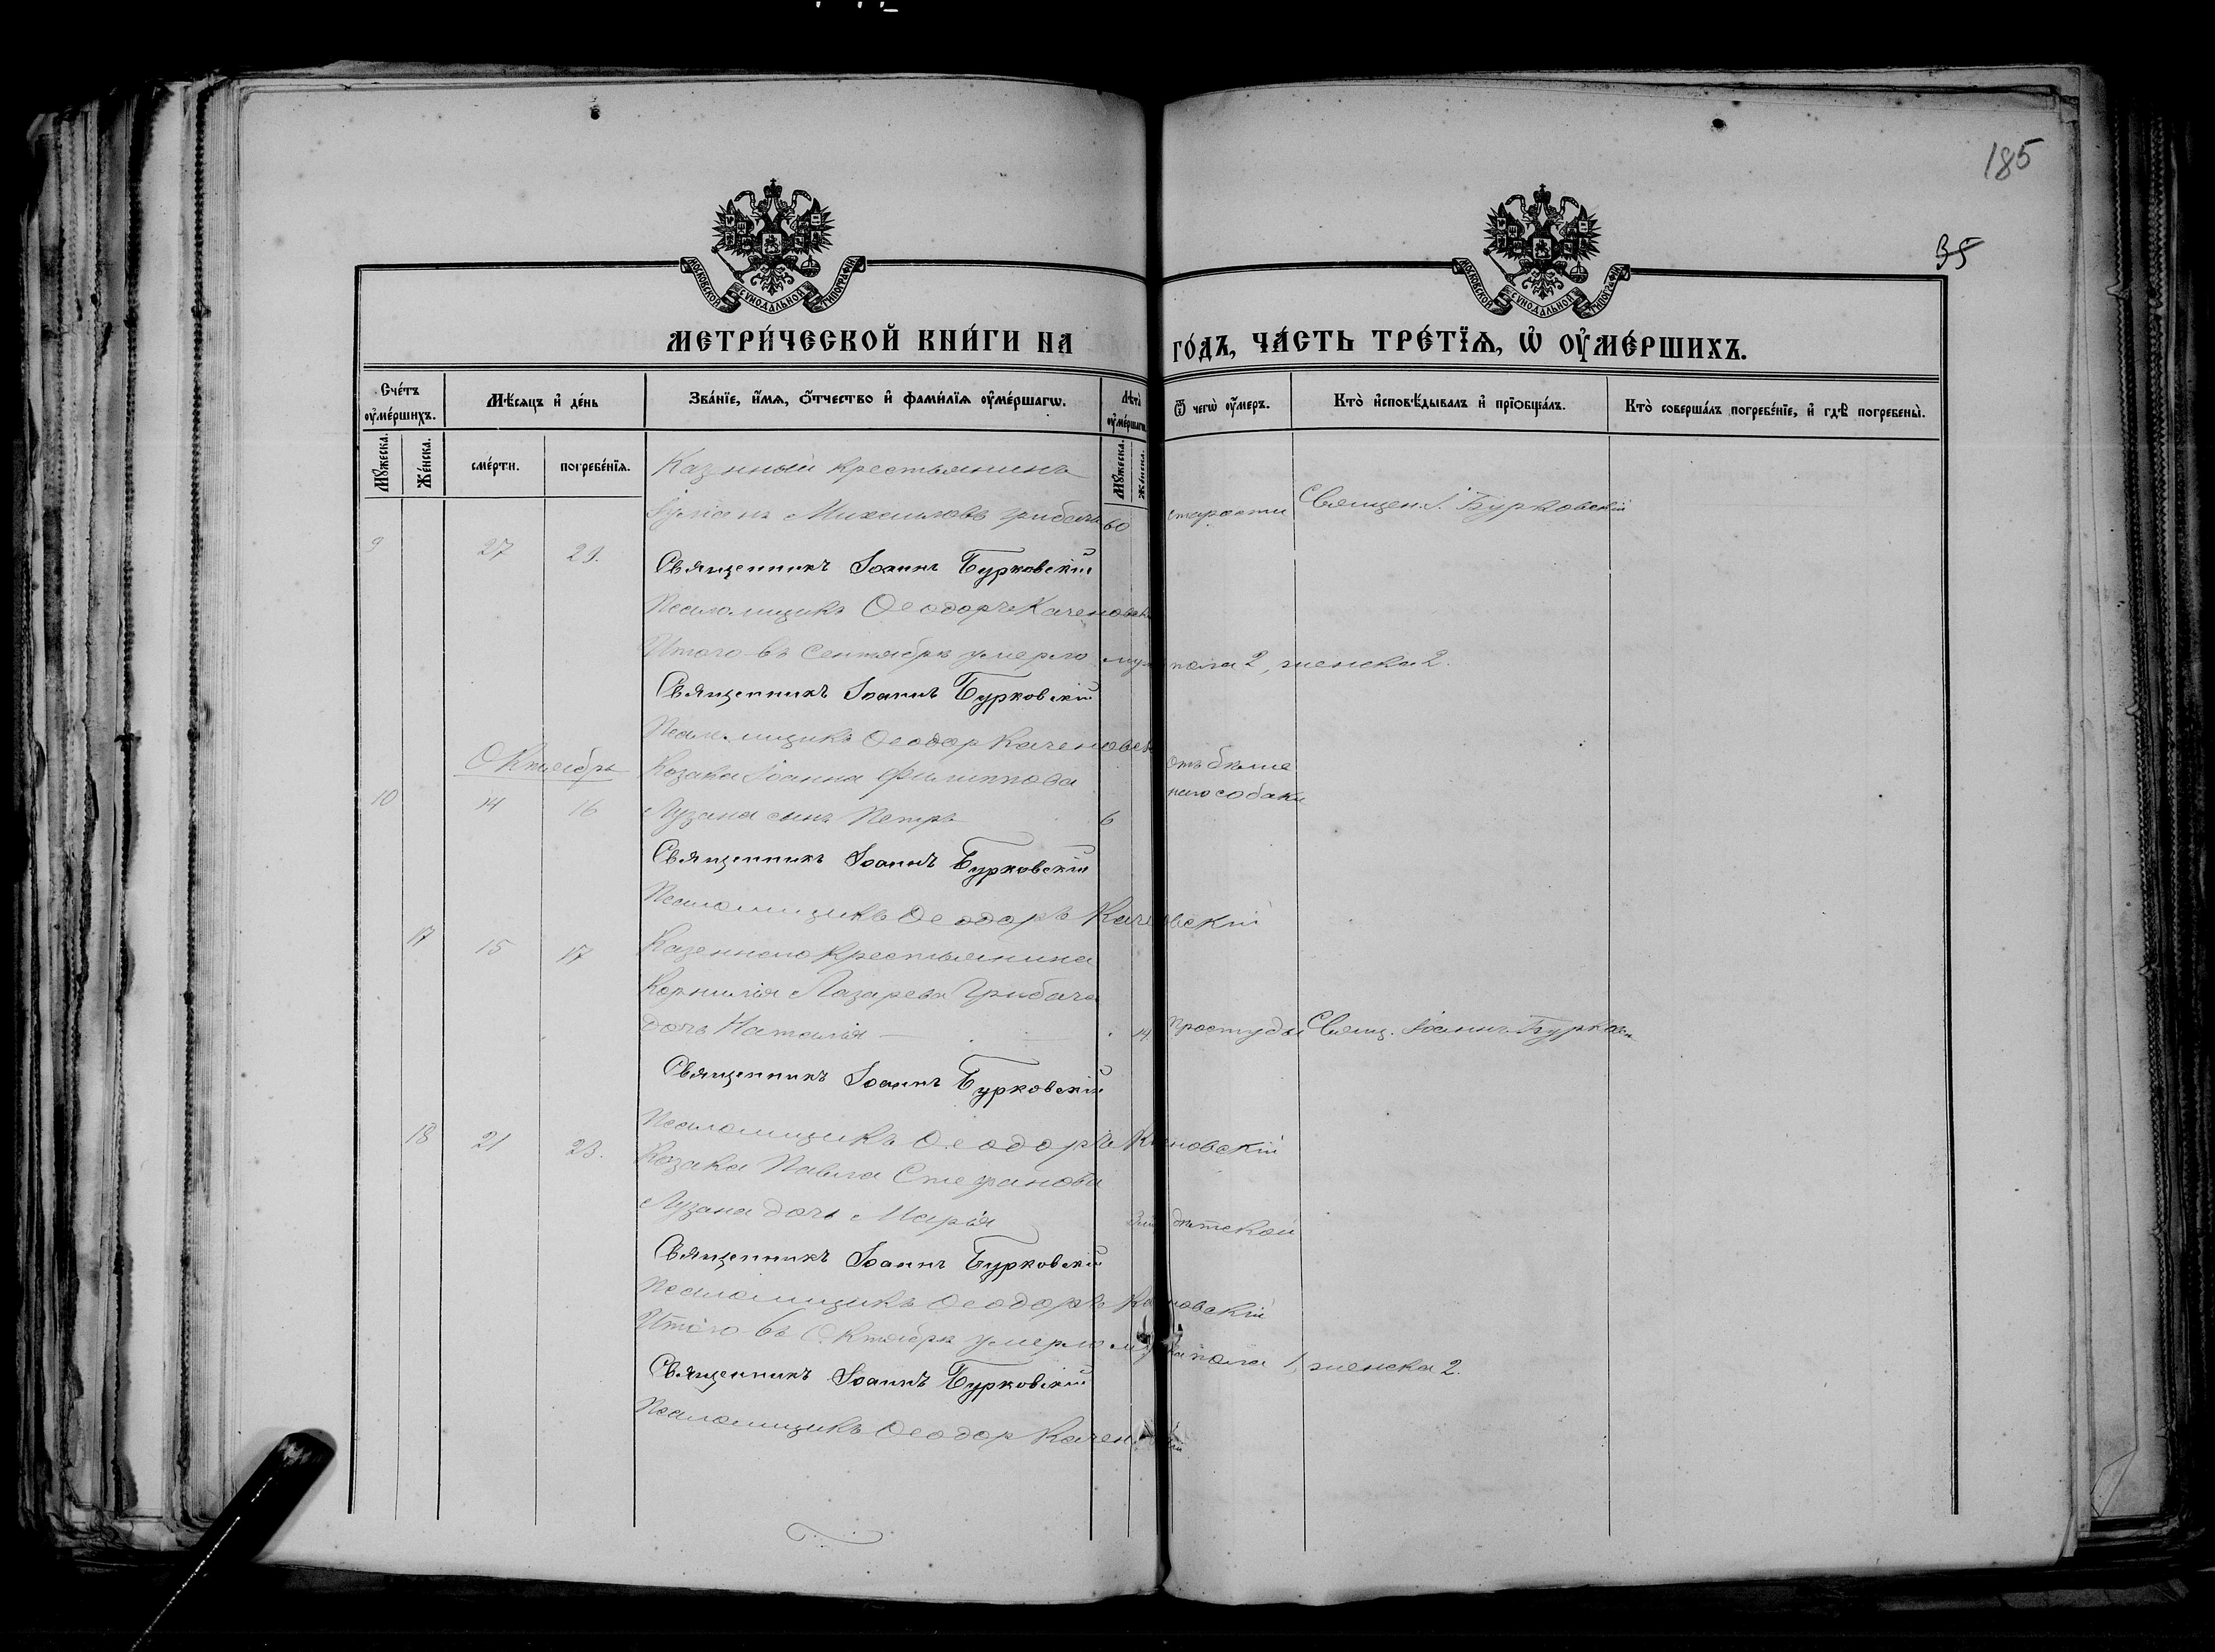 185
35
МОСКОВСКОЙ СѴНОДАЛЬНОЙ ТИПОГРАФІИ
МОСКОВСКОЙ СѴНОДАЛЬНОЙ ТИПОГРАФІИ
МЕТРИ́ЧЕСКОЙ КНИ́ГИ НА ГО́ДЪ, ЧА́СТЬ ТРЕ́ТЇѦ, Ѡ҆ ОУ҆МЕ́РШИХЪ.
Сче́тъ оу҆ме́ршихъ.
Мꙋ́жеска.
Же́нска.
Мѣ́сяцъ и҆ де́нь
сме́рти.
погребе́нїя.
Зва́нїе, и҆́мя, ѻ҆́тчество и҆ фами́лїя оу҆ме́ршагѡ.
Лѣ́та оу҆ме́ршагѡ.
Мꙋ́жеска.
Же́нска.
Ѿ чегѡ̀ оу҆́меръ.
Кто̀ и҆сповѣ́дывалъ и҆ прїѻбща́лъ.
Кто̀ соверша́лъ погребе́нїе, и҆ гдѣ̀ погребены̀.
Казнный крестьянинъ
9 27 29. Михаиловъ Грибачъ 60 старости Священ. І. Бурковскій
Священникъ Іоаннъ Бурковскій
Псаломщикъ Ѳеодоръ Каченовск
Итого въ Сентябрѣ умерло муж пола 2, женска 2.
Священникъ Іоаннъ Бурковскій
Псаломщикъ Ѳеодор Каченовск
Октябрь
Козака Іоанна Филиппова отъ бѣше
10 14 16 Лузана сынъ Петръ 6 наго собаки
Священникъ Іоаннъ Бурковскій
Псаломщикъ Ѳеодоръ Качеовскій
17 15 17 Казеннаго крестьянина
Корнилія Лазарева Грибача
дочь Наталія 14 Простуды Свящ. Іоаннъ Бурков
Священникъ Іоаннъ Бурковскій
Псаломщикъ Ѳеодоръ Кановскій
18 21 23. Козака Павла Стефанова
Лузана дочь Марія дѣтской
Священникъ Іоаннъ Бурковскій
Псаломщикъ Ѳеодоръ Кановскій
Итого въ Октябрѣ умерло муска пола 1, женска 2.
Священникъ Іоаннъ Бурковскій
Псаломщикъ Ѳеодор Качен